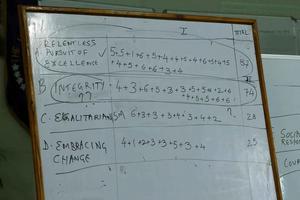 I TOTAL
RELENTLESS
A. PURSUIT OF ✓ 5+5+1+6+5+4+4+5+4+6+5+4+5
EXCELLENCE +4+5+6+6+3+4
B INTEGRITY 4+3+6+5+3+3+5+5+2+6 74
?? +4+5+5+6+6
C. EGALITARIANISM 6+3+3+3+4+3+4+2 ? 28
D. EMBRACING 4+1+2+3+3+5+3+4 25
CHANGE
SOCIAL
RESPO
COU